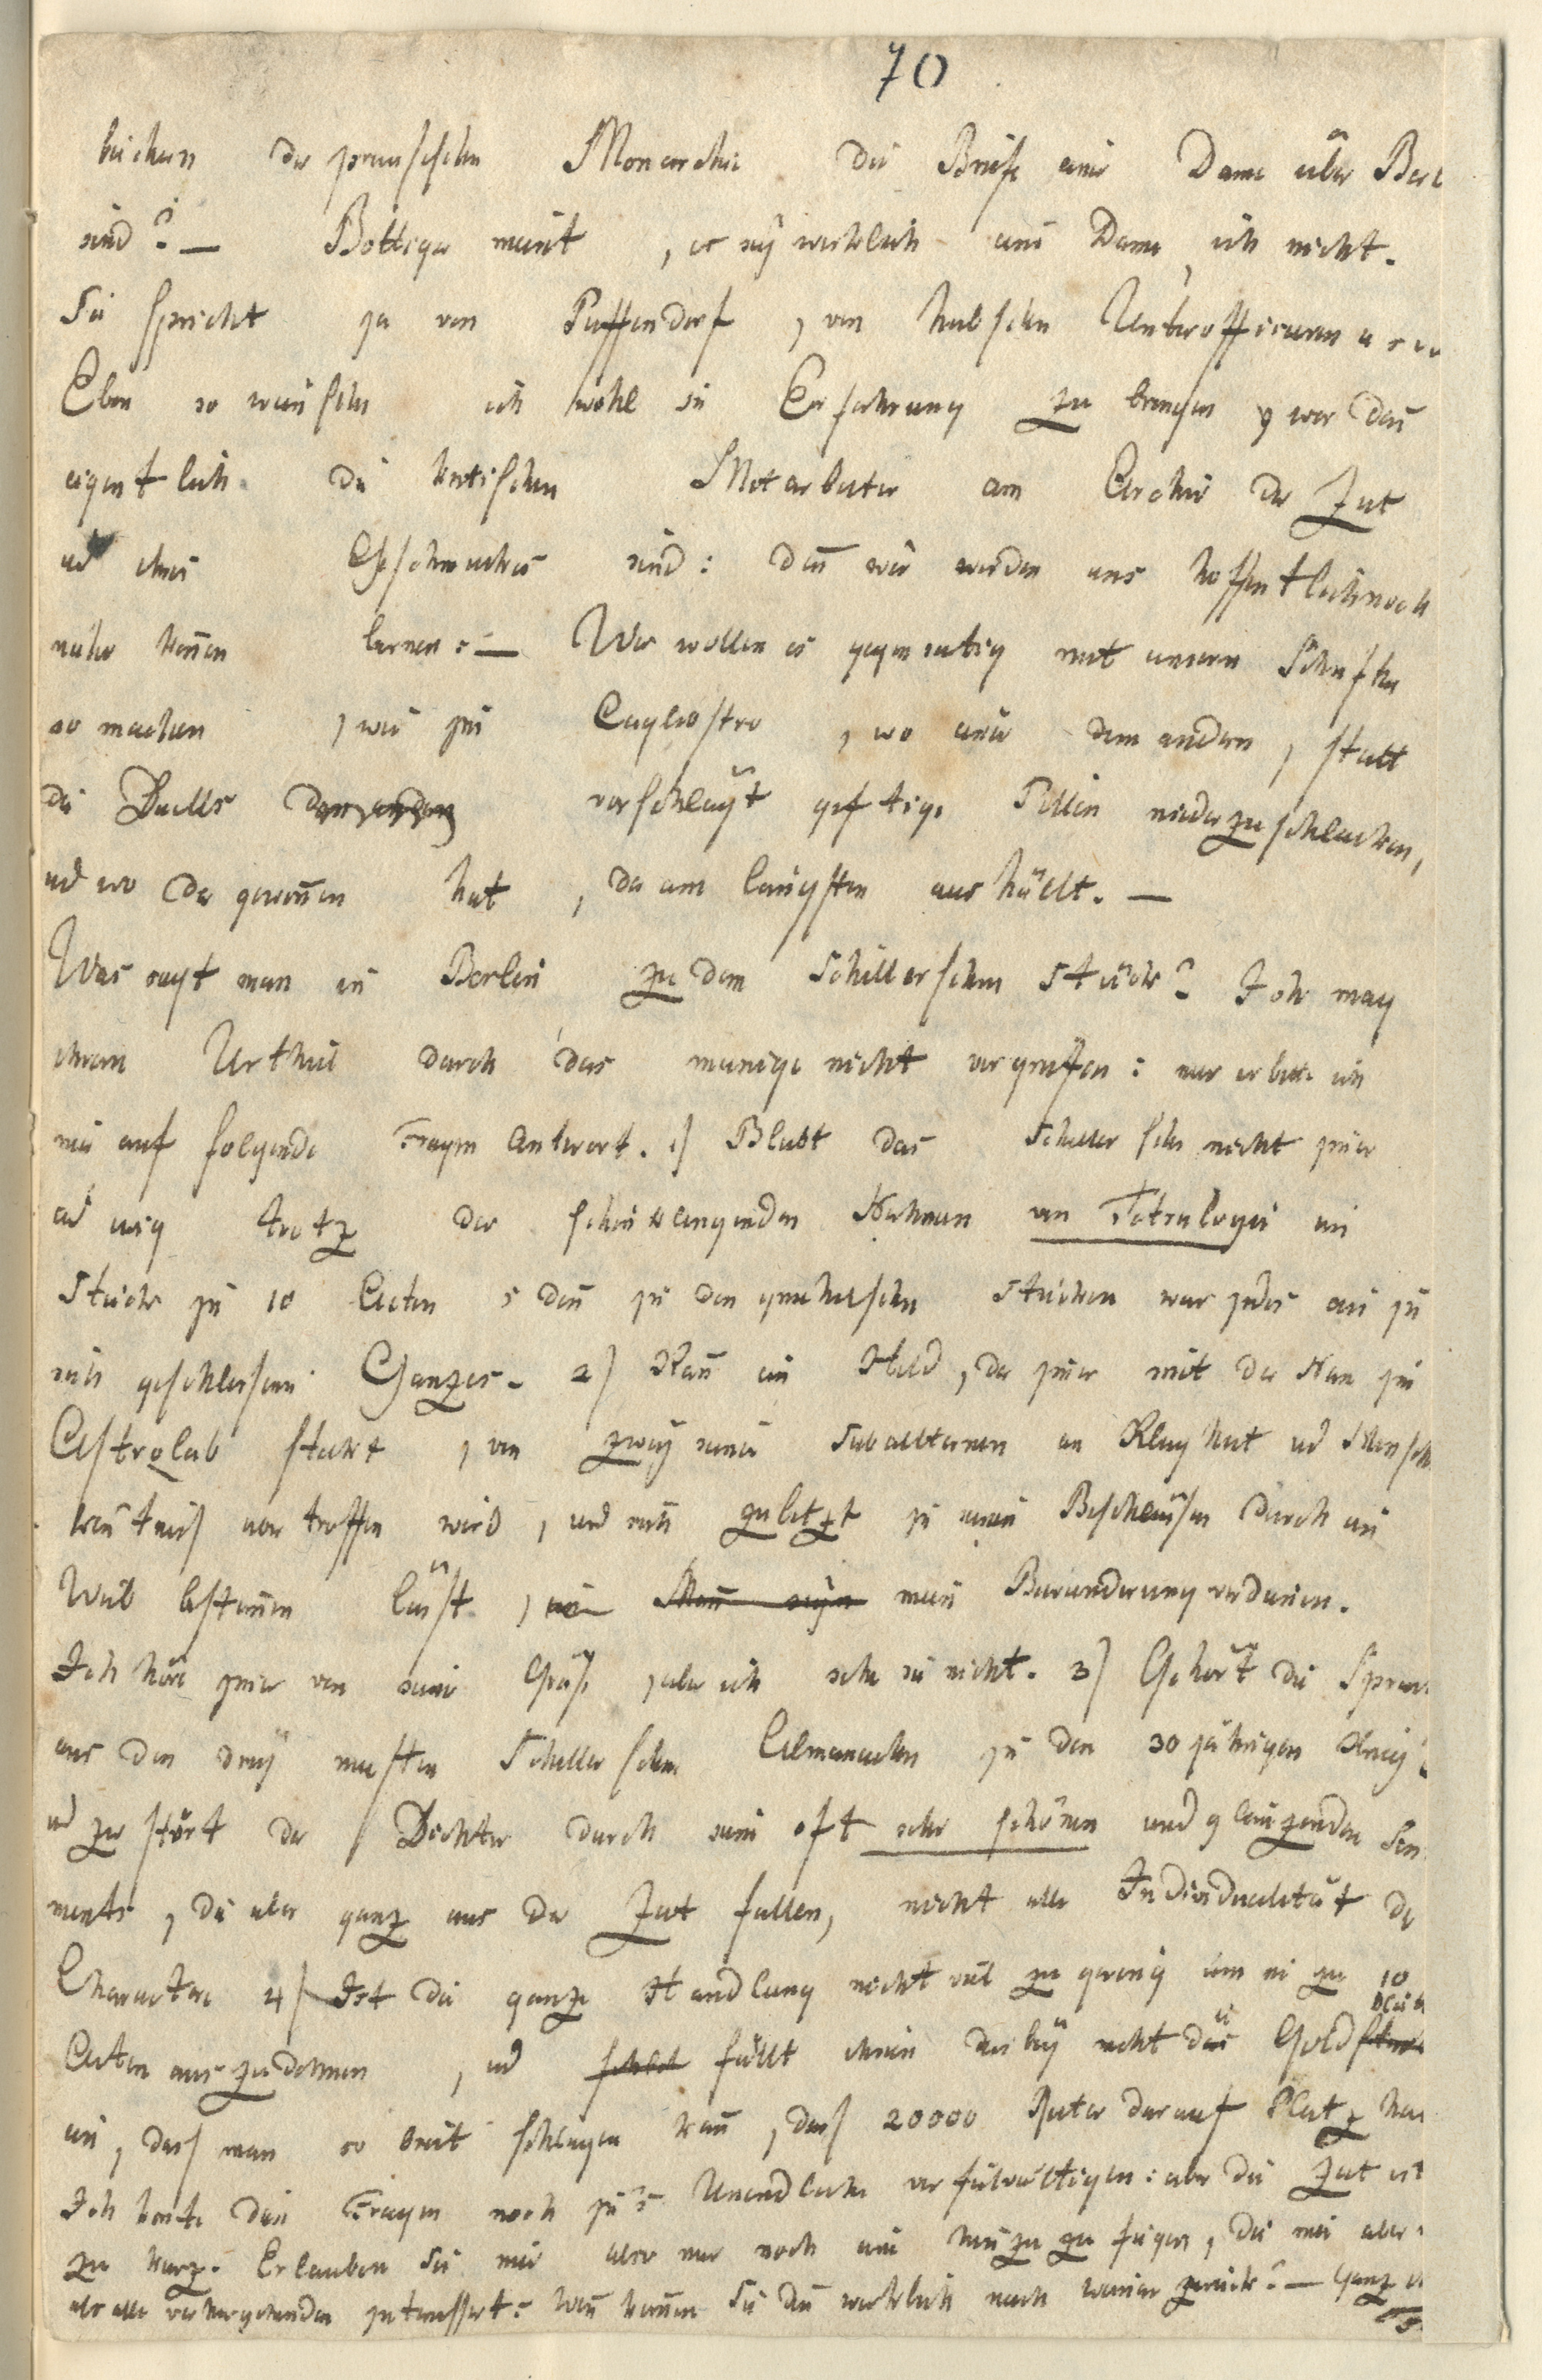 70
büchern der preussischen Monarchie die Briefe einer Dame über Berl
sind? — Böttiger meint, es sey wirklich eine Dame, ich nicht.
Sie spricht ja von Puffendorf, von hübschen Unterofficieren u s w
Eben so wünschte ich wohl in Erfahrung zu bringen, wer deñ
eigentlich die kritischen Mitarbeiter am Archiv der Zeit
ud ihres Geschmackes sind: deñ wir werden uns hoffentlich noch
näher keñen lernen. — Wir wollen es gegenseitig mit unsern Schriften
so machen, wie jener Cagliostro, wo einer dem andern, statt
des Duells vorschlägt giftige Pillen niederzuschlucken,
ud wo der gewoñen hat, der am längsten aushält. —
Was sagt man in Berlin zu dem Schillerschen Stücke? Ich mag
ihrem Urtheil durch das meinige nicht vorgreifen: nur erbitte ich
mir auf folgende Fragen Antwort. 1) Bleibt das Schillersche nicht jmer
ud ewig trotz der schönklingenden Nahmen von Tetralogie ein
Stück jn 10 Acten, deñ jn den griechischen Stücken war jedes ein jn
sich geschlossenes Ganzes. 2) Kañ ein Held, der jmer mit der Nase jm
Astrolab steckt, von zwey seiner Subalternen an Klugheit ud Mensch
keñtniß übertroffen wird, und sich zuletzt jn seinen Beschlüssen durch ein
Weib bestimmen läßt, meine Bewunderung verdienen.
Ich höre jmer von seiner Größe, aber ich sehe sie nicht. 3) Gehört die Sprache
aus den drey neusten Schillerschen Almanachen jn den 30 jährigen Krieg
ud zerstört der Dichter durch seine oft sehr schönen und glänzenden Sen
ments, die aber ganz aus der Zeit fallen, nicht alle Individualität der
Charactere 4) Ist die ganze Handlung nicht viel zu gering um sie zu 10
Acten auszudehnen, ud fällt ihnen dabey nicht das Gold
ein, daß man so breit schlagen kañ, daß 20000 Reiter darauf Platz ha
Ich könte diese Fragen noch jn's Unendliche vervielfältigen: aber die Zeit ist
zu kurz. Erlauben Sie mir also nur noch eine hinzu zu fügen, die mir aber
als alle vorhergehenden jnteressirt: Wañ kommen Sie deñ wirklich nach Weimar zurück? — Ganz